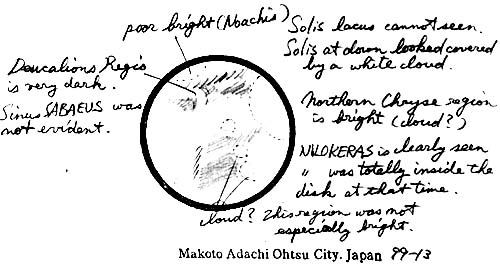 poor bright (Noachis)
Deucalions Regio
is very dark.
Sinus SABAEUS was
not evident.
Solis lacus cannot seen.
Solis at down looked covered
by a white cloud.
Northern Chryse region
is bright (cloud?)
NILOKERAS is clearly seen
" was totally inside the
disk at that time.
cloud? This region was not
especially bright.
Makoto Adachi Ohtsu City. Japan 99-13